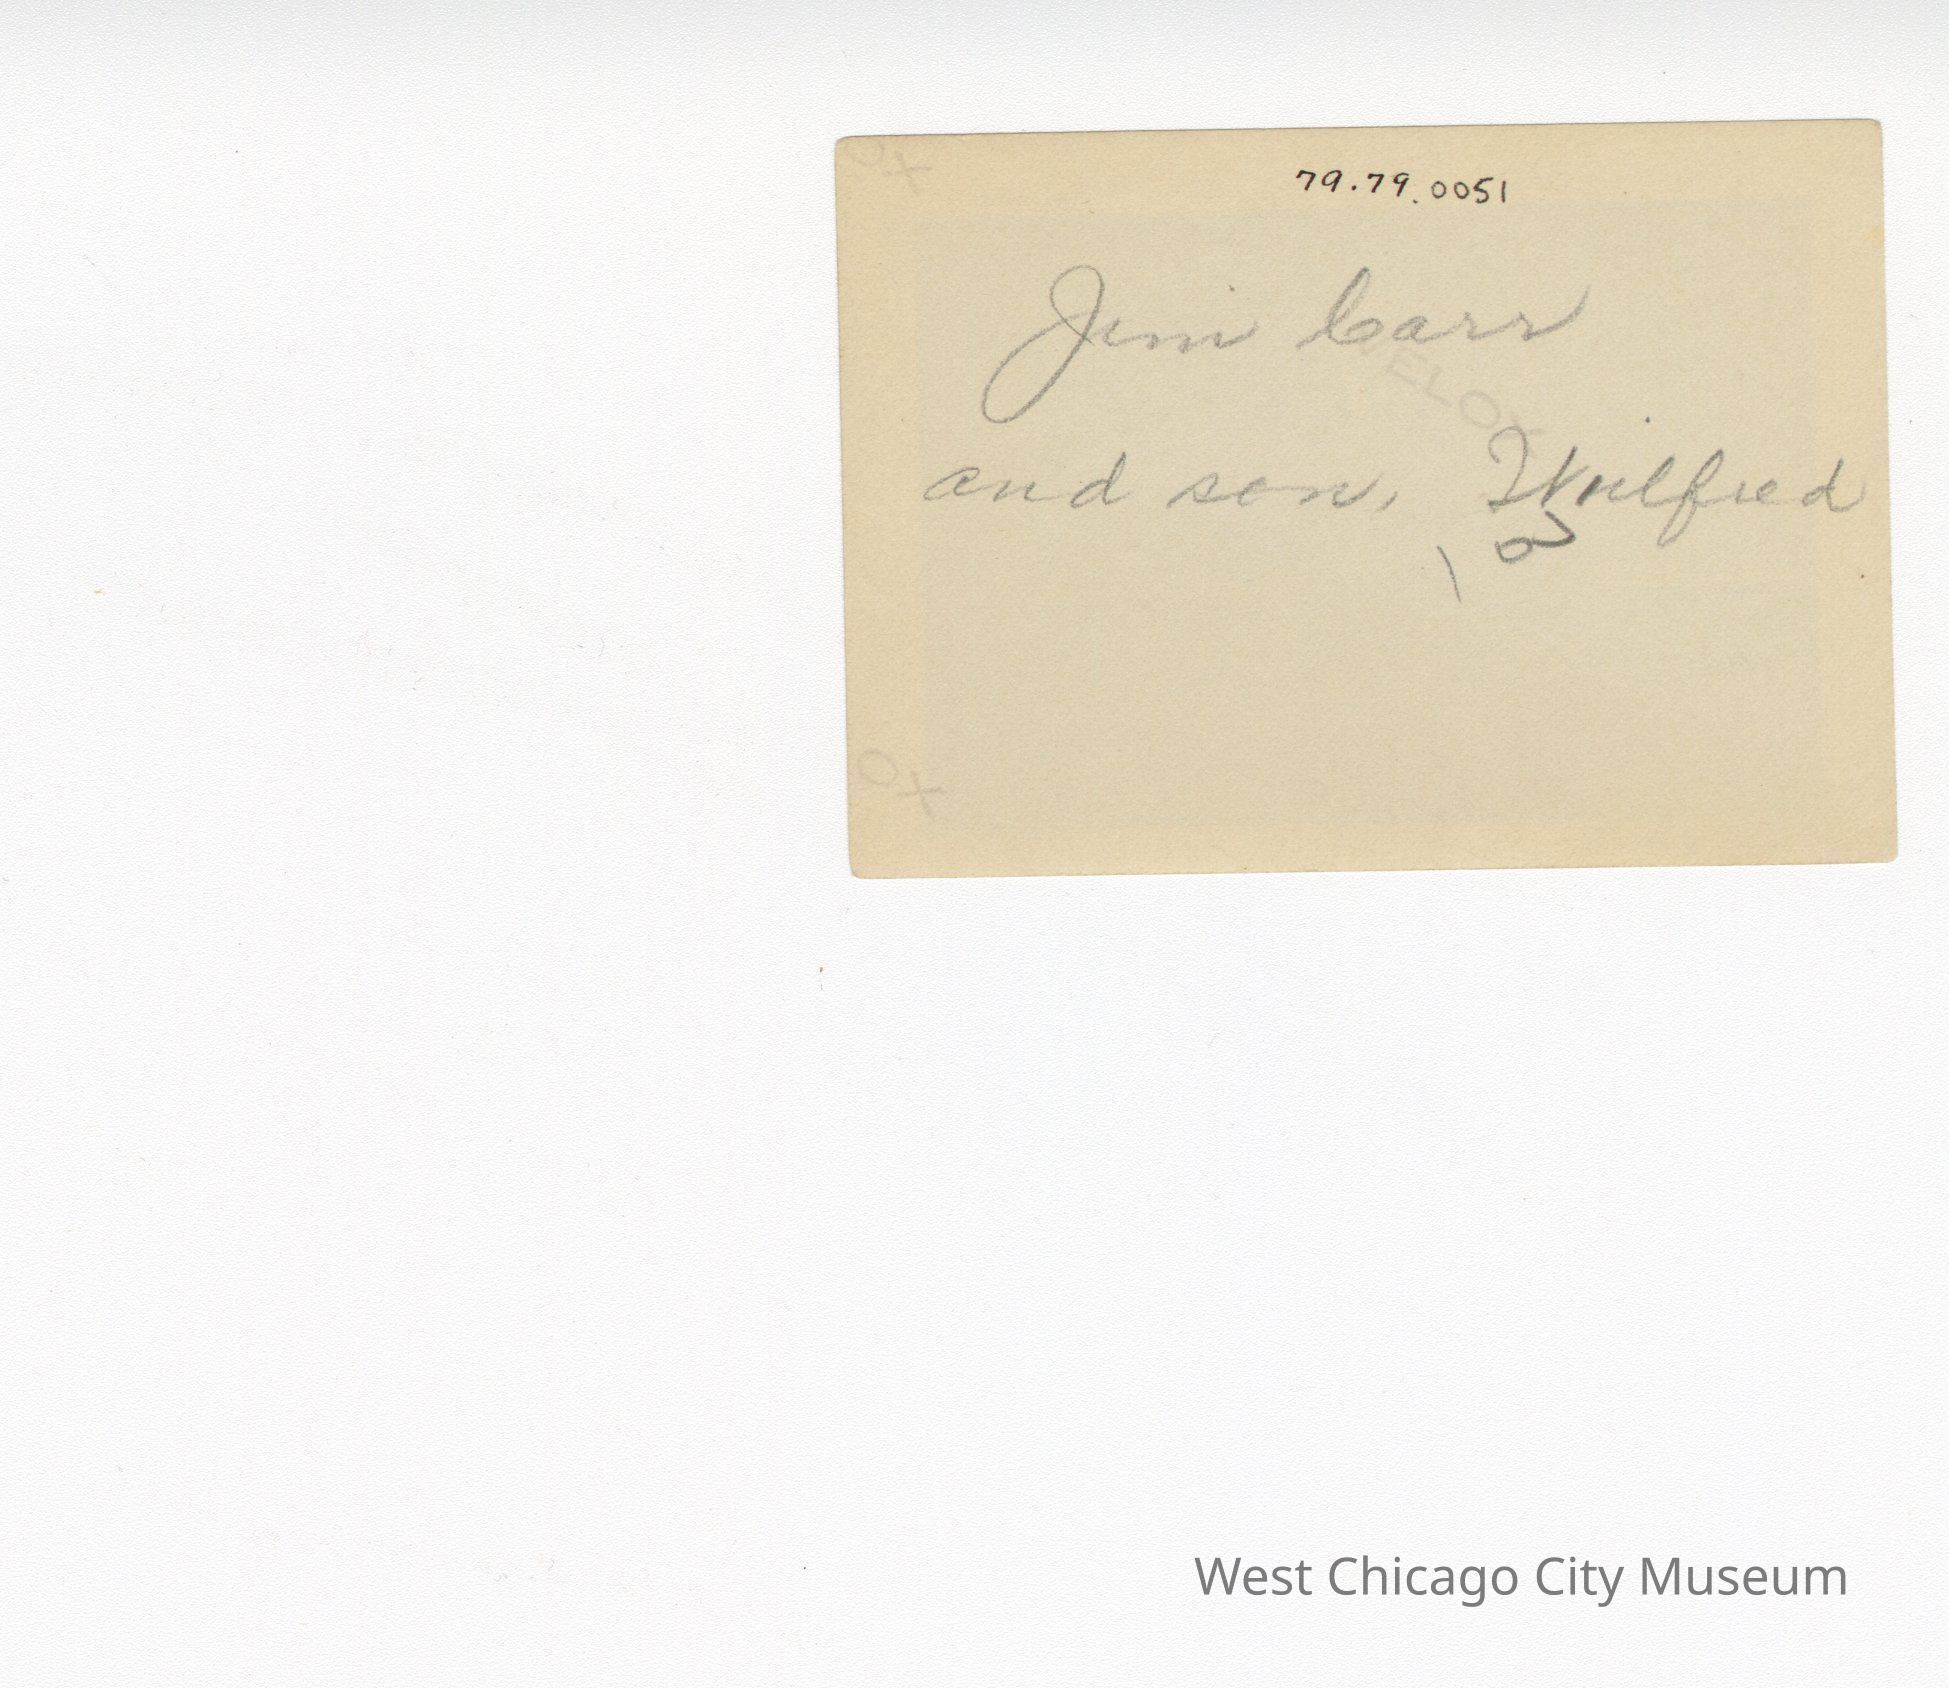 79.79.0051
Jim Carr
VELOX
and son, Wilfred
OX
West Chicago City Museum